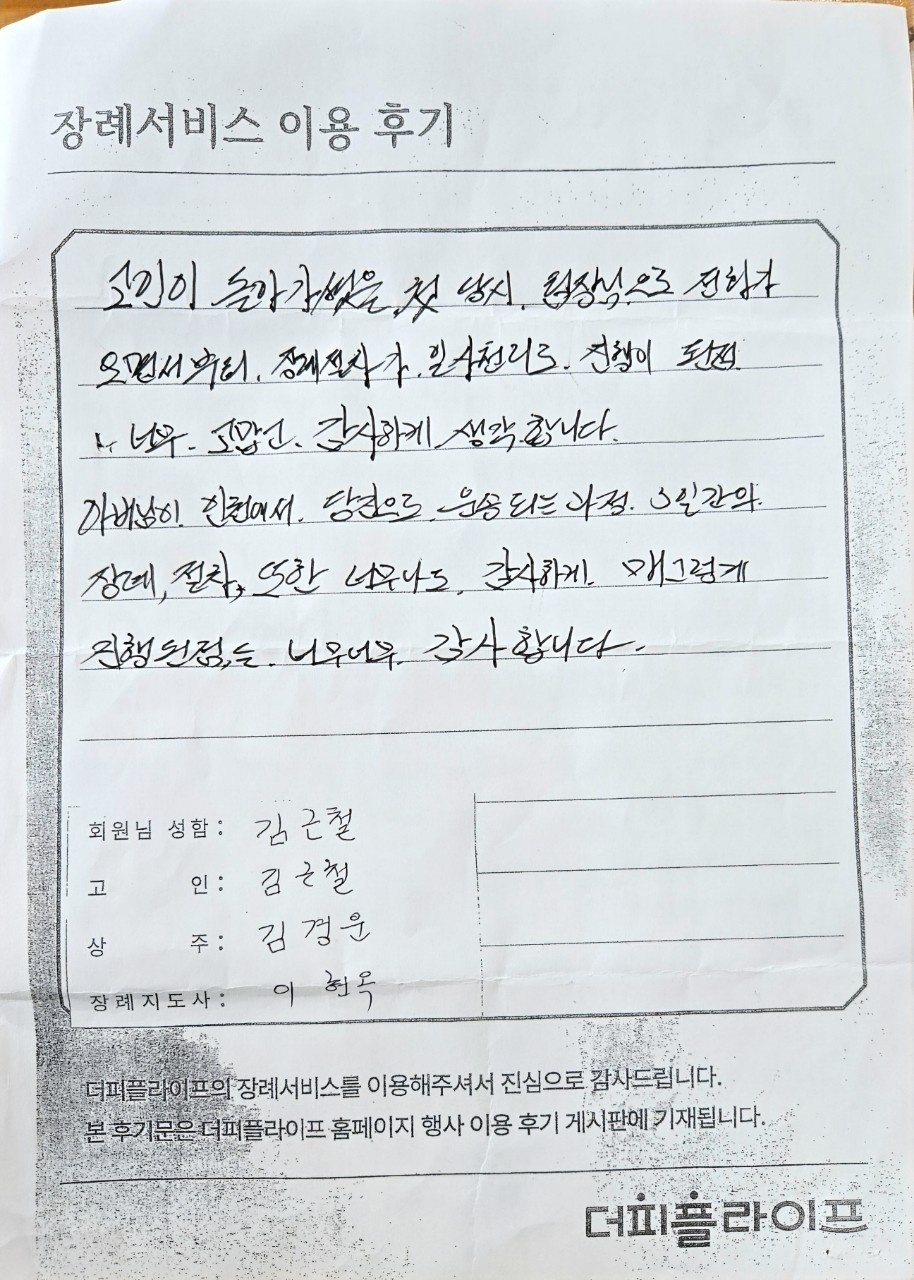 장례서비스 이용 후기
고인이 돌아가셨을 첫 당시. 팀장님으로 전화가
오면서부터. 장례절차가. 일사천리로. 진행이 된점.
너무. 고맙고. 감사하게 생각.합니다.
아버님이. 인천에서. 당진으로. 운송되는 과정. 3일간의.
장례, 절차, 또한 너무나도. 감사하게. 매그럽게
진행된점.는. 너무너무. 감사합니다.
회원님 성함: 김근철
고 인: 김근철
상 주: 김경운
장례지도사: 이현옥
더피플라이프의 장례서비스를 이용해주셔서 진심으로 감사드립니다.
본 후기문은 더피플라이프 홈페이지 행사 이용 후기 게시판에 기재됩니다.
더피플라이프